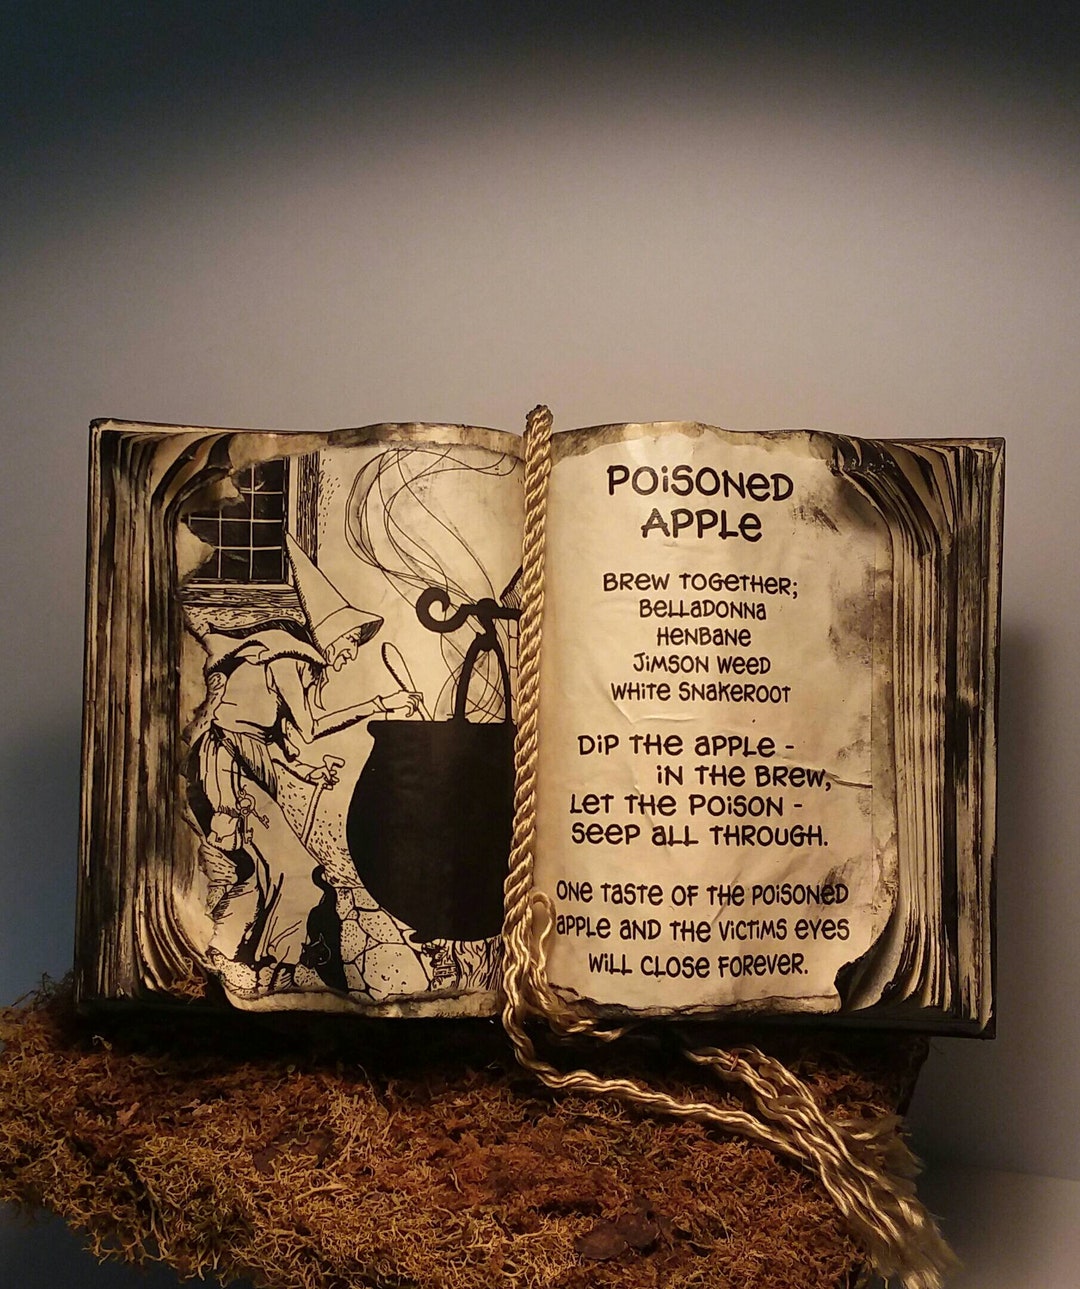 POiSONED
APPLE
BREW TOGETHER;
BELLADONNA
HENBANE
JiMSON WEED
WHITE SNAKEROOT
DiP THE APPLE -
iN THE BREW,
LET THE POISON -
SEEP ALL THROUGH.
ONE TASTE OF THE POISONED
APPLE AND THE VICTIMS EYES
WiLL CLOSE FOREVER.